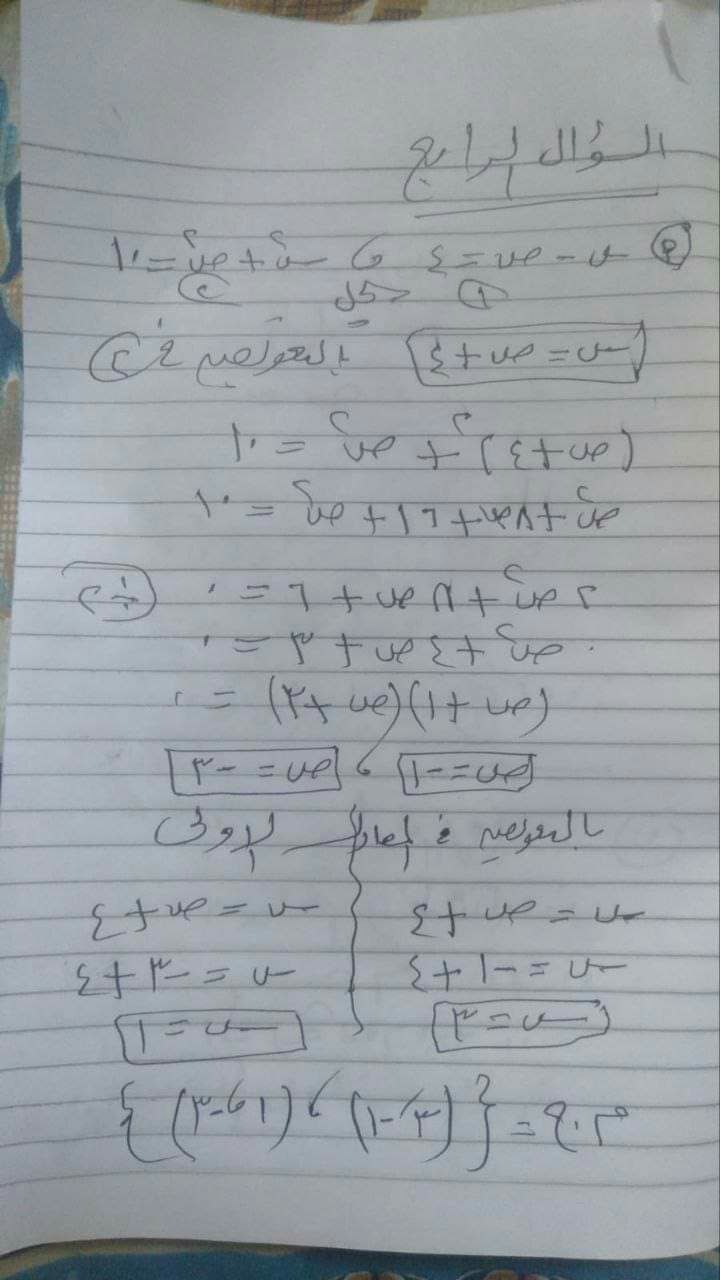 السؤال الرابع
(أ) س - ص = ٤ ، س٢ + ص٢ = ١٠
(١) حل (٢)
س = ص + ٤ بالتعويض في (٢)
(ص + ٤)٢ + ص٢ = ١٠
ص٢ + ٨ص + ١٦ + ص٢ = ١٠
٢ص٢ + ٨ص + ٦ = ٠ (÷٢)
ص٢ + ٤ص + ٣ = ٠
(ص + ١)(ص + ٣) = ٠
ص = -١ ، ص = -٣
بالتعويض في المعادلة الأولى
س = ص + ٤ س = ص + ٤
س = -١ + ٤ س = -٣ + ٤
س = ٣ س = ١
م.ح = {(٣، -١) ، (١، -٣)}